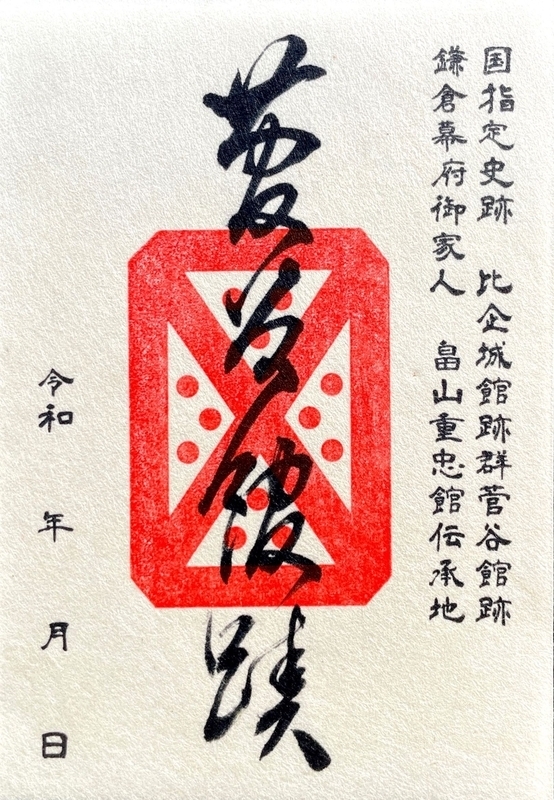 国指定史跡　比企城館跡群菅谷館跡
鎌倉幕府御家人　畠山重忠館伝承地
菅谷館蹟
令和　年　月　日